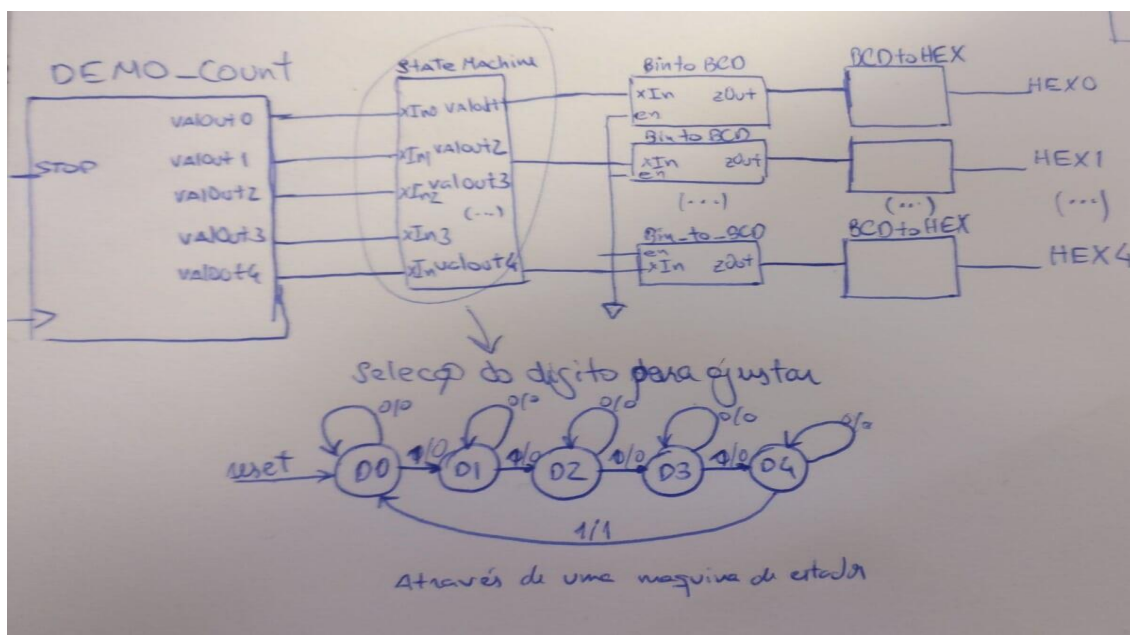 DEMO_Count
STOP
valOut0
valOut1
valOut2
valOut3
valOut4
State Machine
xIn0 valOut1
xIn1 valout2
xIn2 valout3
(...)
xIn3
xIn valout4
Bin to BCD
xIn zOut
en
Bin to BCD
xIn zOut
en
(...)
Bin_to_BCD
en
xIn zOut
BCD to HEX
(...)
BCD to HEX
HEX0
HEX1
(...)
HEX4
Selecção do digito para ajustar
reset
0/0 0/0 0/0 0/0 0/0
D0 1/0 D1 1/0 D2 1/0 D3 1/0 D4
1/1
Através de uma maquina de estados